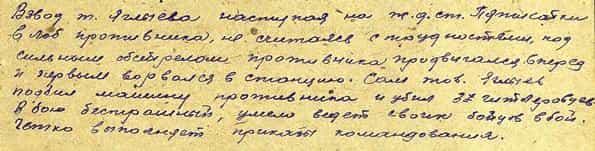 Взвод т. Яглыева наступая на ж.д.ст. Пятихатки
в лоб противника, не считаясь с трудностями, под
сильным обстрелом противника продвигался вперед
и первым ворвался в станцию. Сам тов. Яглыев
подбил машину противника и убил 37 гитлеровцев.
В бою бесстрашный, умело ведет своих бойцов в бой.
Четко выполняет приказы командования.